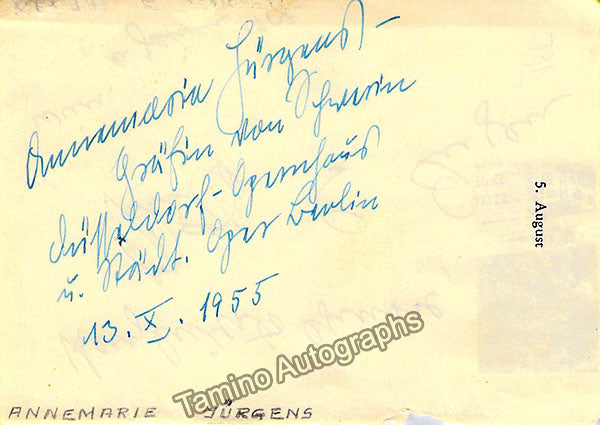 Annemarie Jürgens-
Gräfin von Schwerin
Düsseldorf-Opernhaus
u. Städt. Oper Berlin
13. X. 1955
5. August
Tamino Autographs
ANNEMARIE JÜRGENS